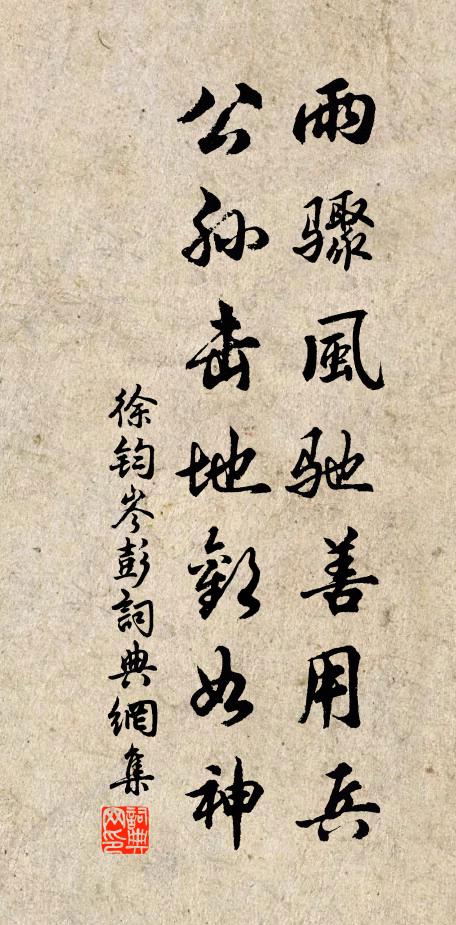 雨驟風馳善用兵
公孫击地歎如神
徐鈞岑彭詞典網集
詞典网印